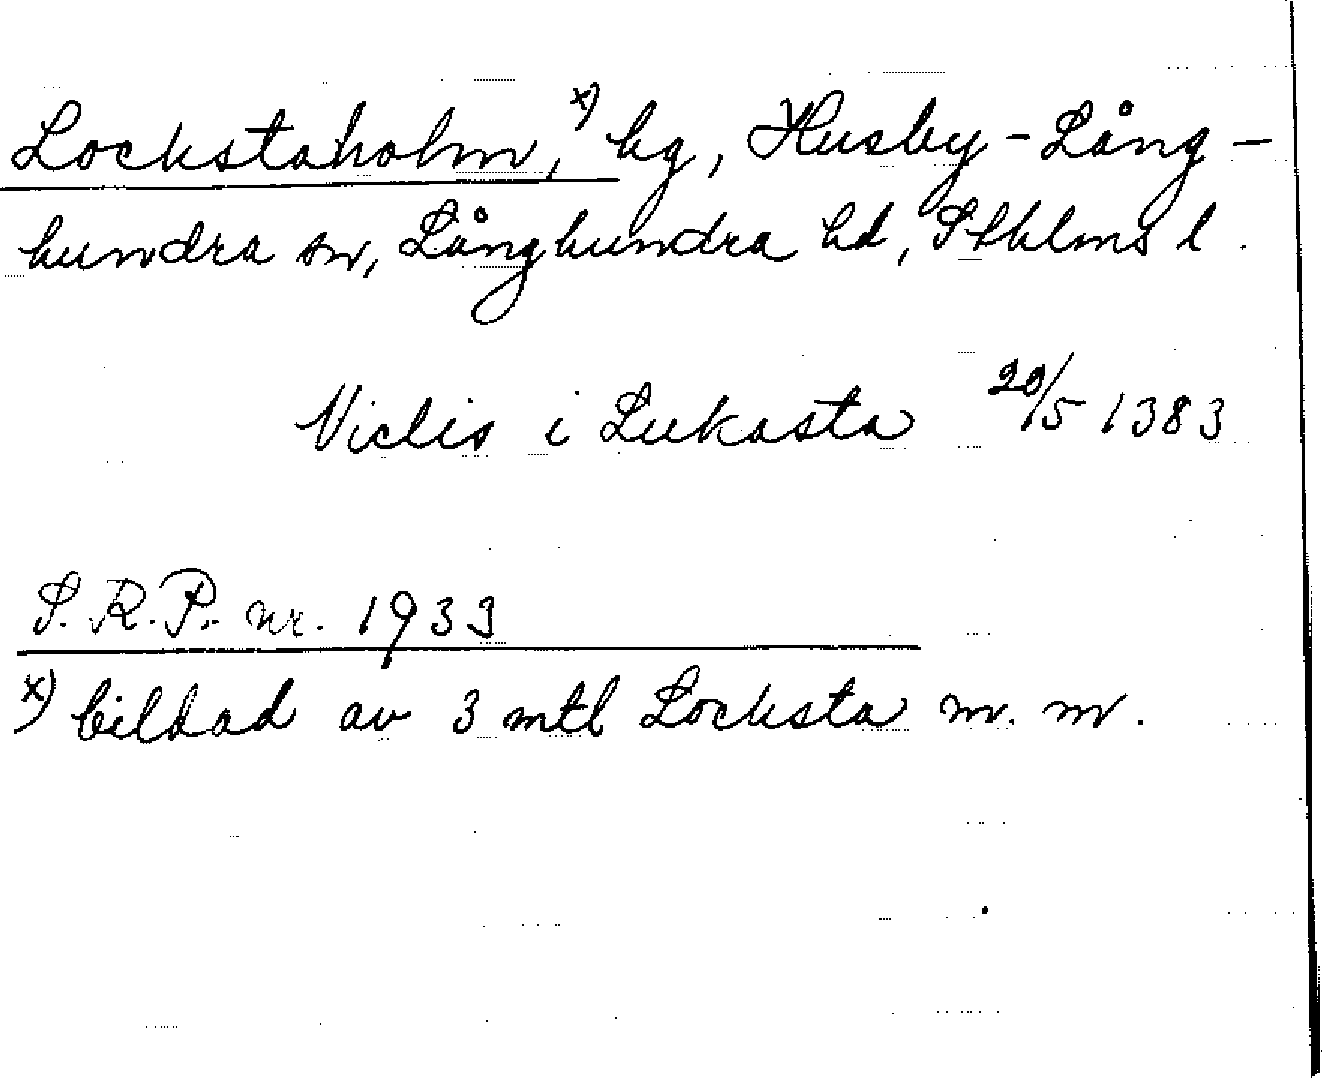 Lockstaholm,ˣ⁾ hg, Husby-Lång-
hundra sn, Långhundra hd, Sthlms l.
Niclis i Lukasta 20/5 1383
S.R.P. nr. 1933
x) bildad av 3 mtl Locksta m. m.